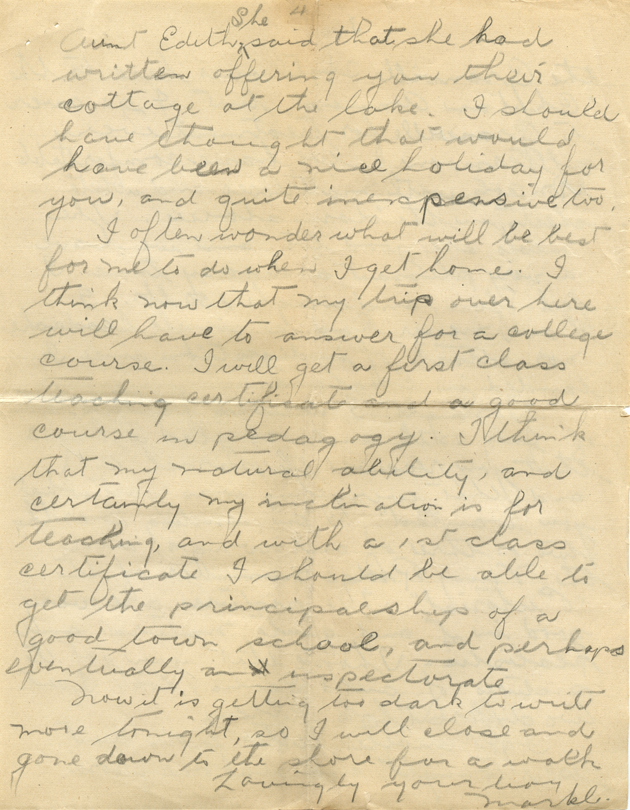 She 4
Aunt Edith, said that she had
written offering you their
cottage at the lake. I should
have thought that would
have been a nice holiday for
you, and quite inexpensive too.
I often wonder what will be best
for me to do when I get home. I
think now that my trip over here
will have to answer for a college
course. I will get a first class
teaching certificate and a good
course in pedagogy. I think
that my natural ability, and
certainly my inclination is for
teaching, and with a 1st class
certificate I should be able to
get the principalship of a
good town school, and perhaps
eventually an inspectorate
Now it is getting too dark to write
more tonight, so I will close and
gone down to the shore for a walk
Lovingly your boy